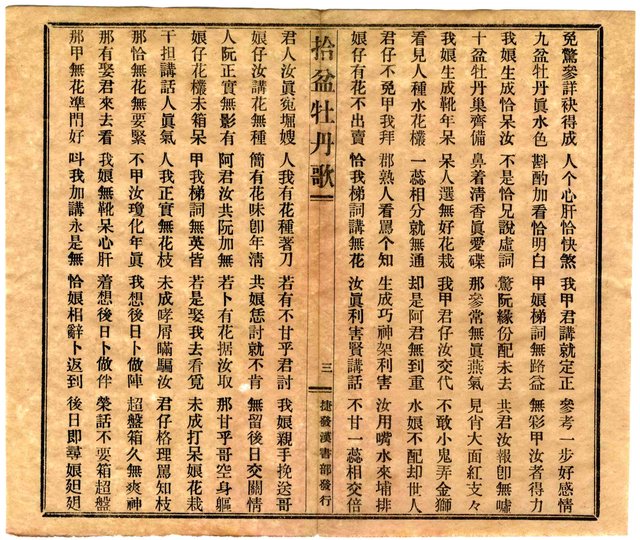 免驚參詳袂得成 人个心肝恰快煞 我甲君講就定正 參考一步好感情
九盆牡丹眞水色 斟酌加看恰明白 甲娘梯詞無路益 無彩甲汝者得力
我娘生成恰呆汝 不是恰兄說虛詞 驚阮緣份配未去 共君汝報卽無噓
十盆牡丹巢齊備 鼻着清香眞愛碟 那參常無眞燕氣 見肖大面紅支々
我娘生成靴年呆 呆人選無好花栽 我甲君仔汝交代 不敢小鬼弄金獅
看見人種水花欉 一蕊相分就無通 却是阿君無到重 水娘不配却世人
君仔不免甲我拜 郡熟人看罵个知 生成巧神架利害 汝用嘴水來埔排
娘仔有花不出賣 恰我梯詞講無花 汝眞利害賢講話 不甘一蕊相交倍
拾盆牡丹歌 三 捷發漢書部發行
君人汝眞寃堀嫂 人我有花種著刀 若有不甘乎君討 我娘親手挽送哥
娘仔汝講花無種 簡有花味卽年清 共娘恁討就不肯 無留後日交關情
人阮正實無影有 阿君汝共阮加無 若卜有花据汝取 那甘乎哥空身軀
娘仔花欉未箱呆 甲我梯詞無英皆 若是娶我去看覓 未成打呆娘花栽
干担講話人眞氣 人我正實無花枝 未成哮屑瞞騙汝 君仔格理罵知枝
那恰無花無要緊 不甲汝瓊化年眞 我想後日卜做陣 超盤箱久無爽神
那有娶君來去看 我娘無靴呆心肝 着想後日卜做伴 榮話不要箱超盤
那甲無花準門好 叫我加講永是無 恰娘相辭卜返到 後日卽尋娘廻廻